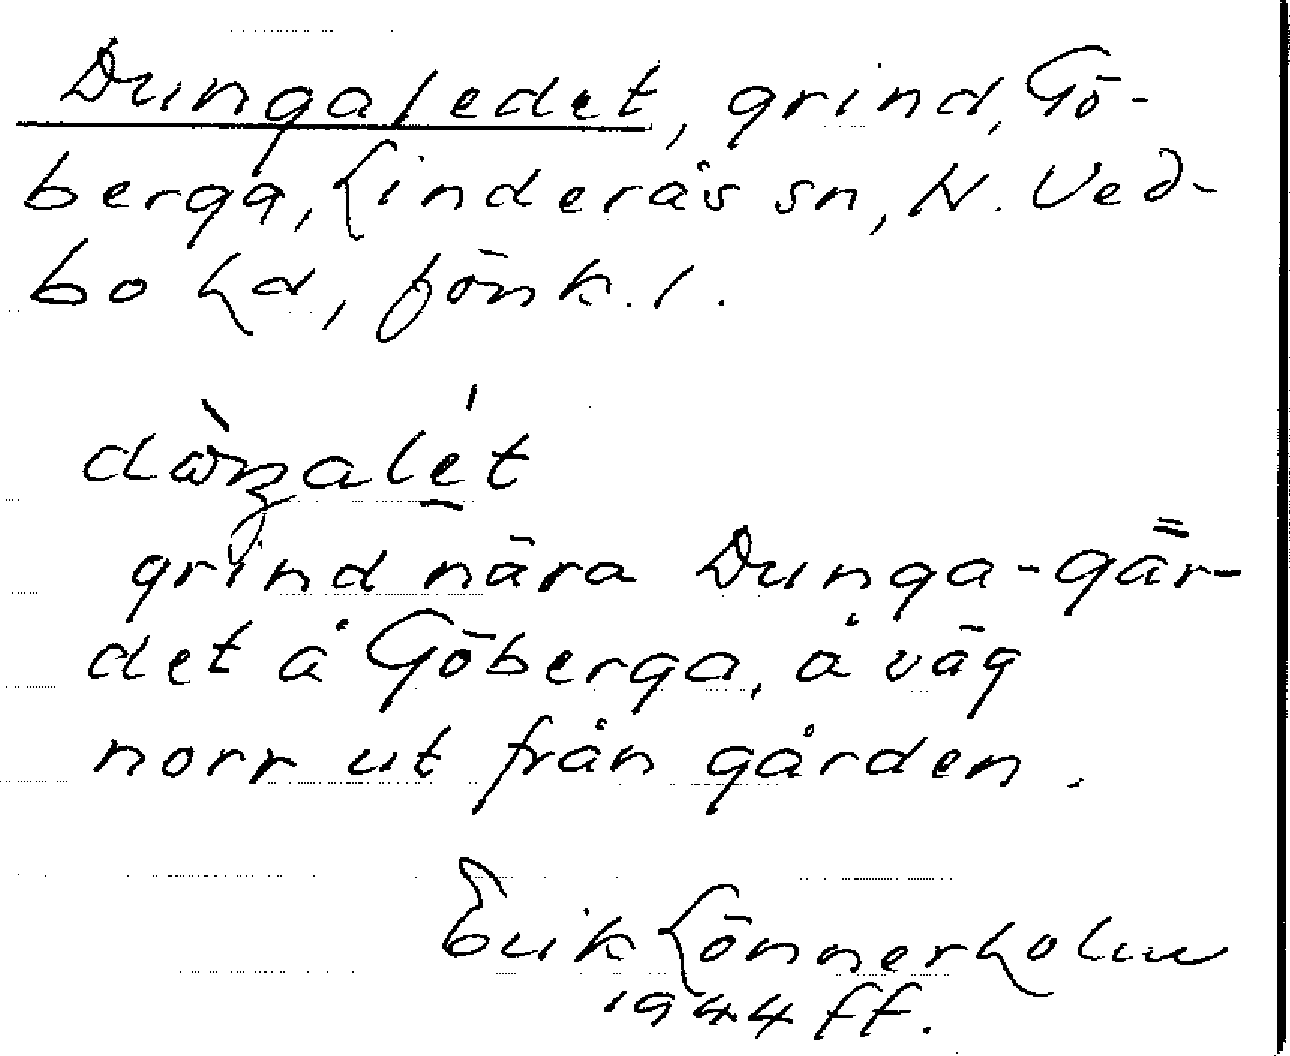 Dungaledet, grind, Gö-
berga, Linderås sn, N. Ved-
bo hd, Jönk. l.
dωŋalet
grind nära Dunga-gär-
det å Göberga, å väg
norr ut från gården.
Erik Lönnerholm
1944 ff.